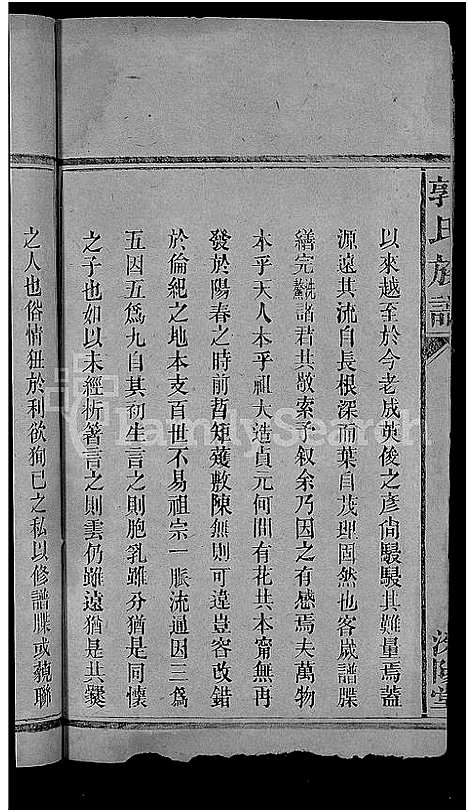 郭氏族譜
以來越至於今老成英俊之彥尙駸駸其難量焉蓋
源遠其流自長根深而葉自茂理固然也客歲譜牒
繕完洗鰲諸君共敬索予叙余乃因之有感焉夫萬物
本乎天人本乎祖大造貞元何間有花共本甯無再
發於陽春之時前哲矩薙敷陳無則可違豈容改錯
於倫紀之地本支百世不易祖宗一脈流通因三爲
五因五爲九自其初生言之則胞乳雖分猶是同懷
之子也如以未經析箸言之則雲仍雖遠猶是共爨
之人也俗情狃於利欲狥已之私以修譜牒或藐聯
FamilySearch